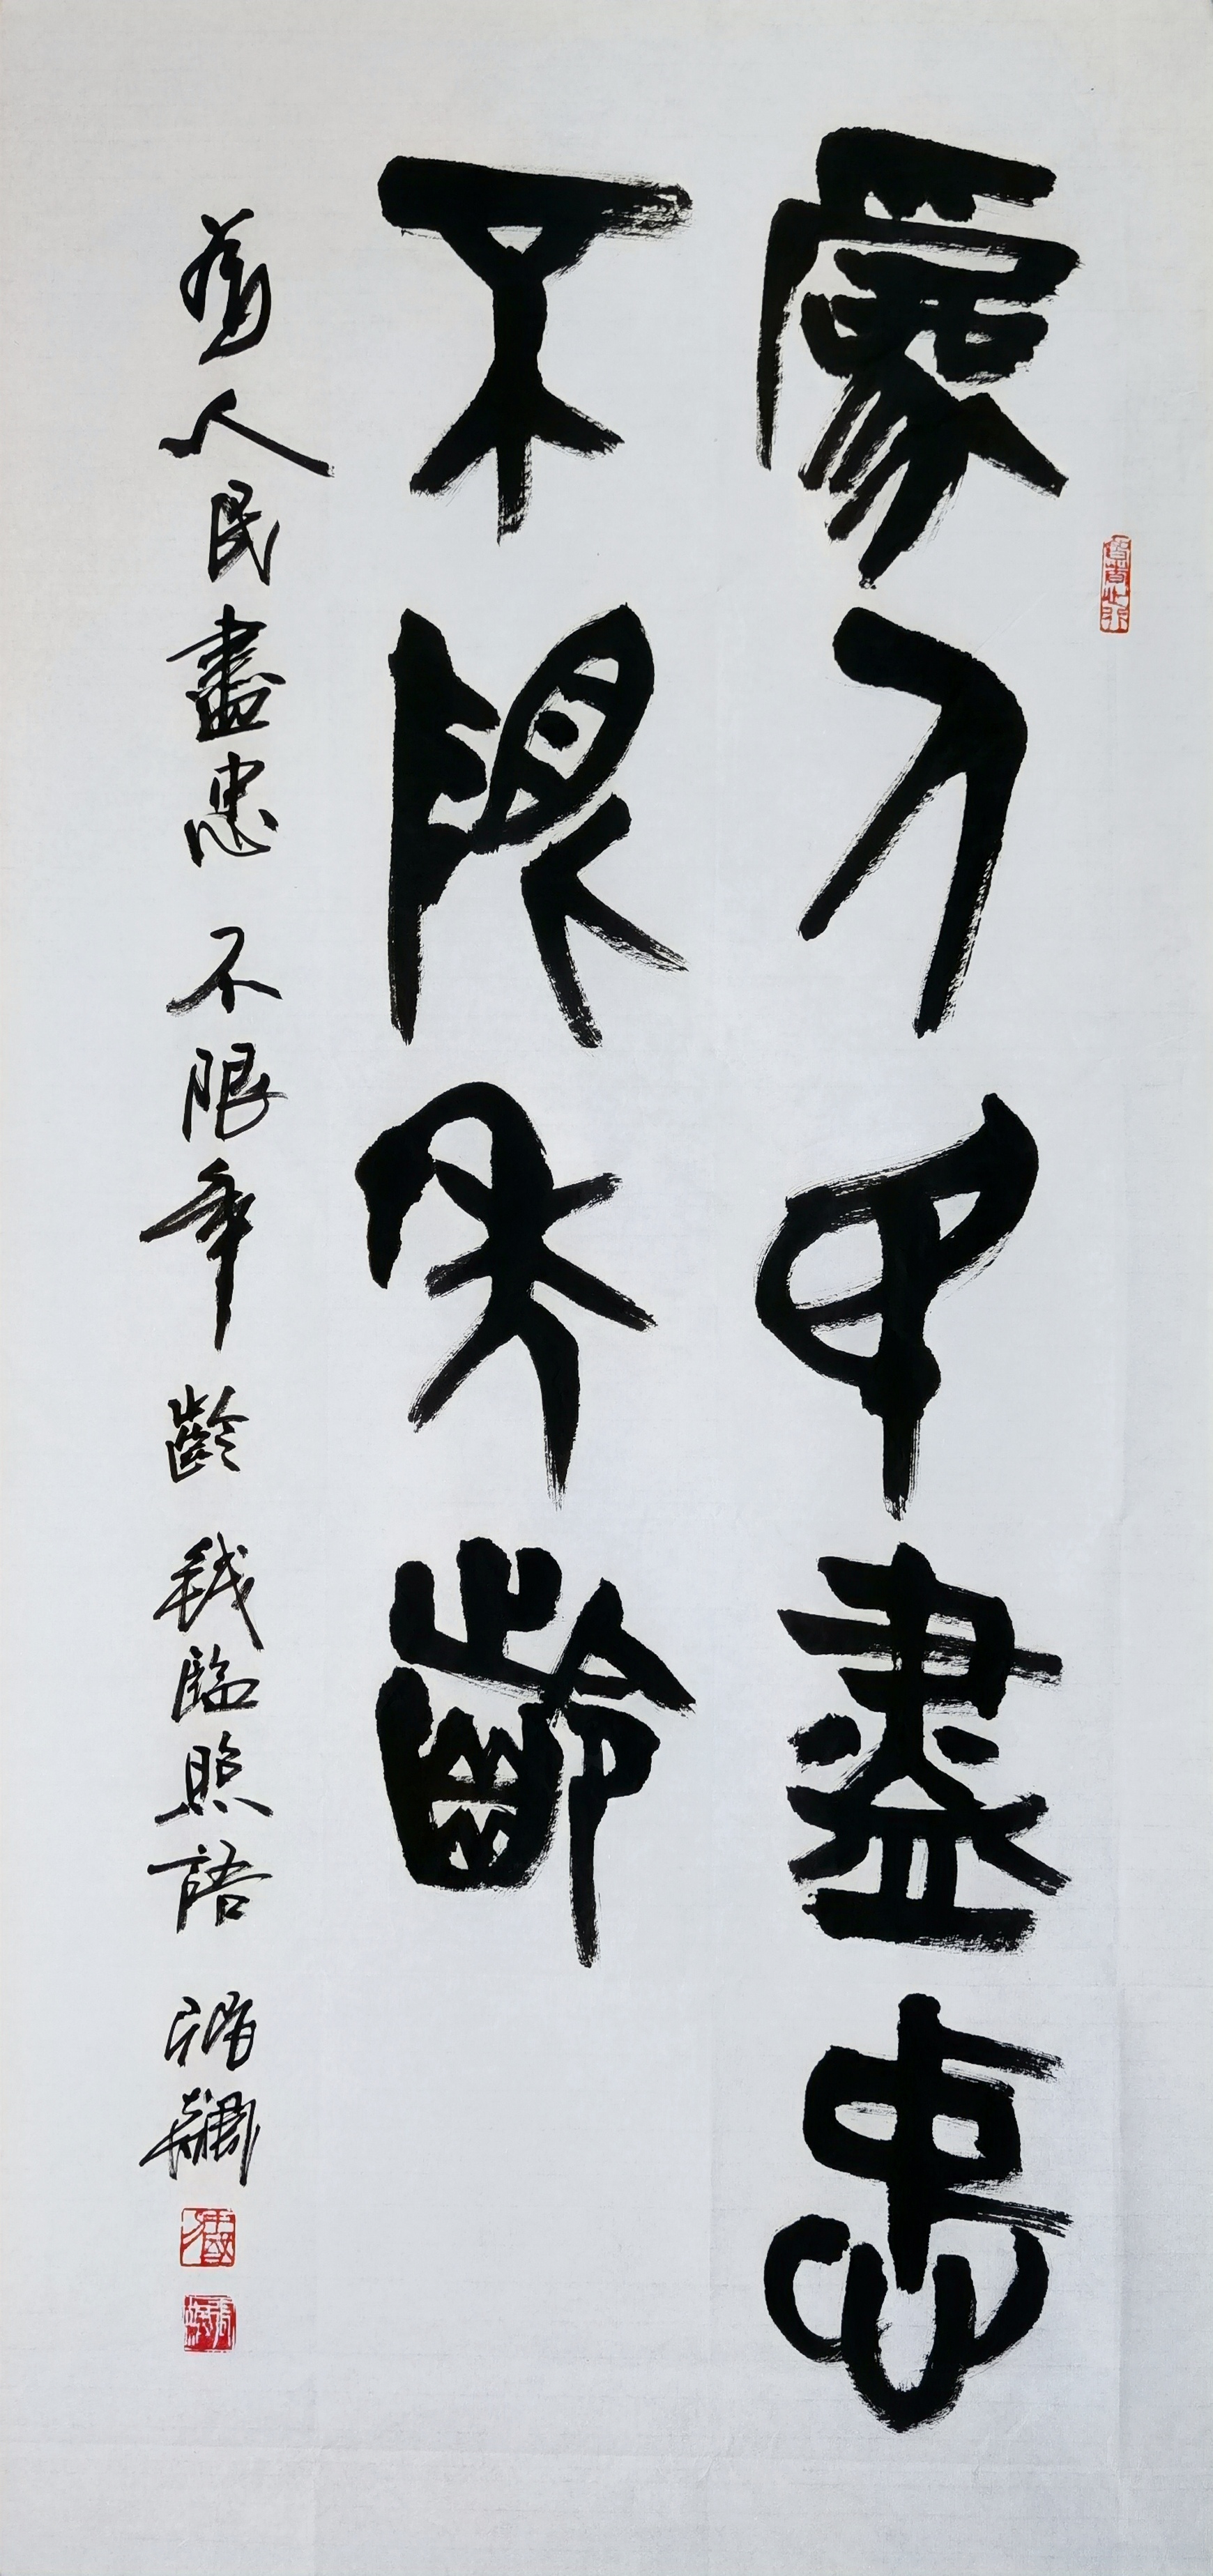 為人民盡忠
不限年齡
為人民盡忠 不限年齡 錢臨照語